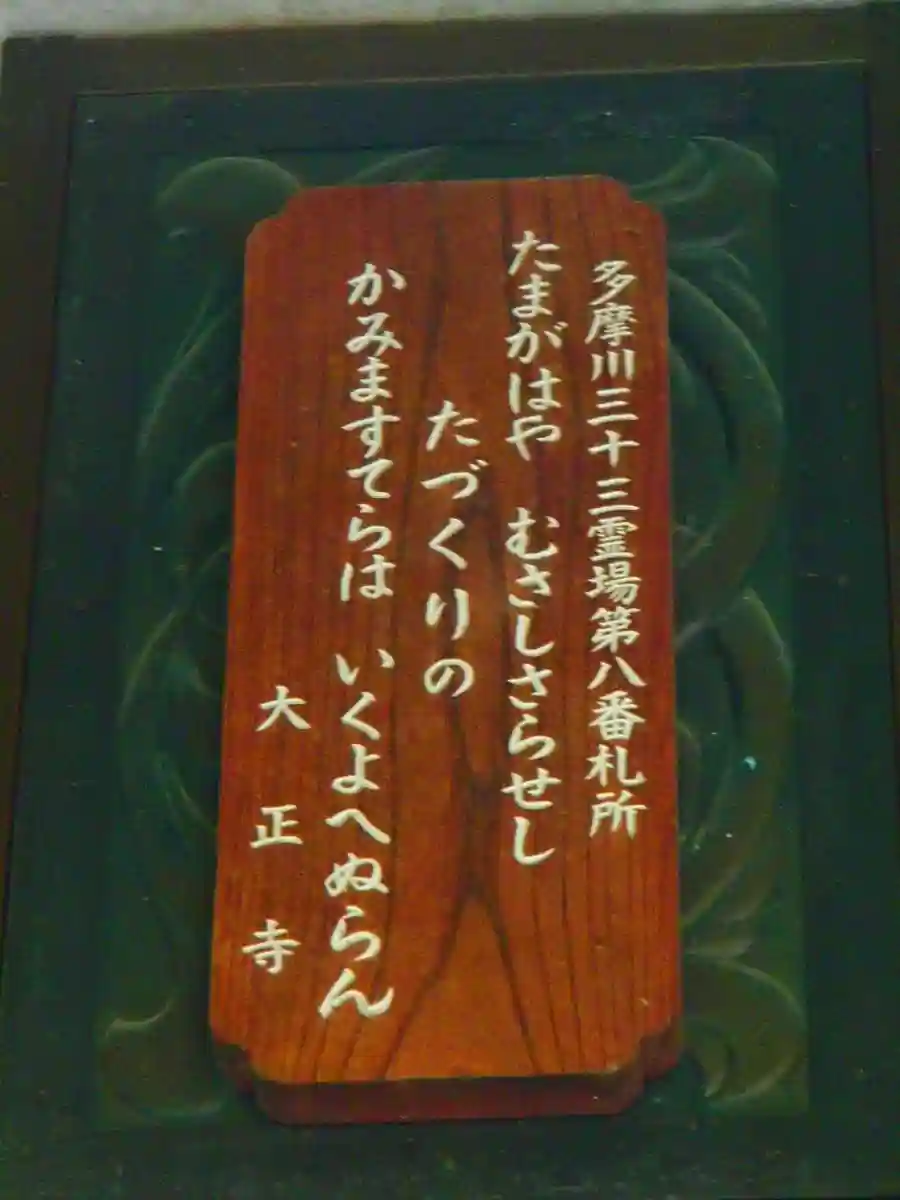 多摩川三十三霊場第八番札所
たまがはや　むさしさらせし
たづくりの
かみますてらは　いくよへぬらん
大正寺